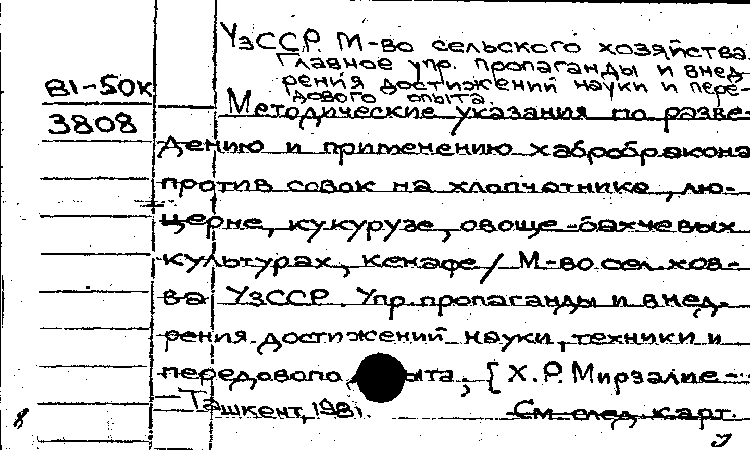 УзССР. М-во сельского хозяйства.
Главное упр. пропаганды и внед-
рения достижений науки и пере-
дового опыта.
В1-50К
3808
Методические указания по разве-
дению и применению хабробракона
против совок на хлопчатнике, лю-
церне, кукурузе, овоще-бахчевых
культурах, кенафе / М-во сел. хоз-
ва УзССР. Упр. пропаганды и внед-
рения достижений науки, техники и
передового опыта; [Х.Р. Мирзалие-
Ташкент, 1981.
См. след. карт.